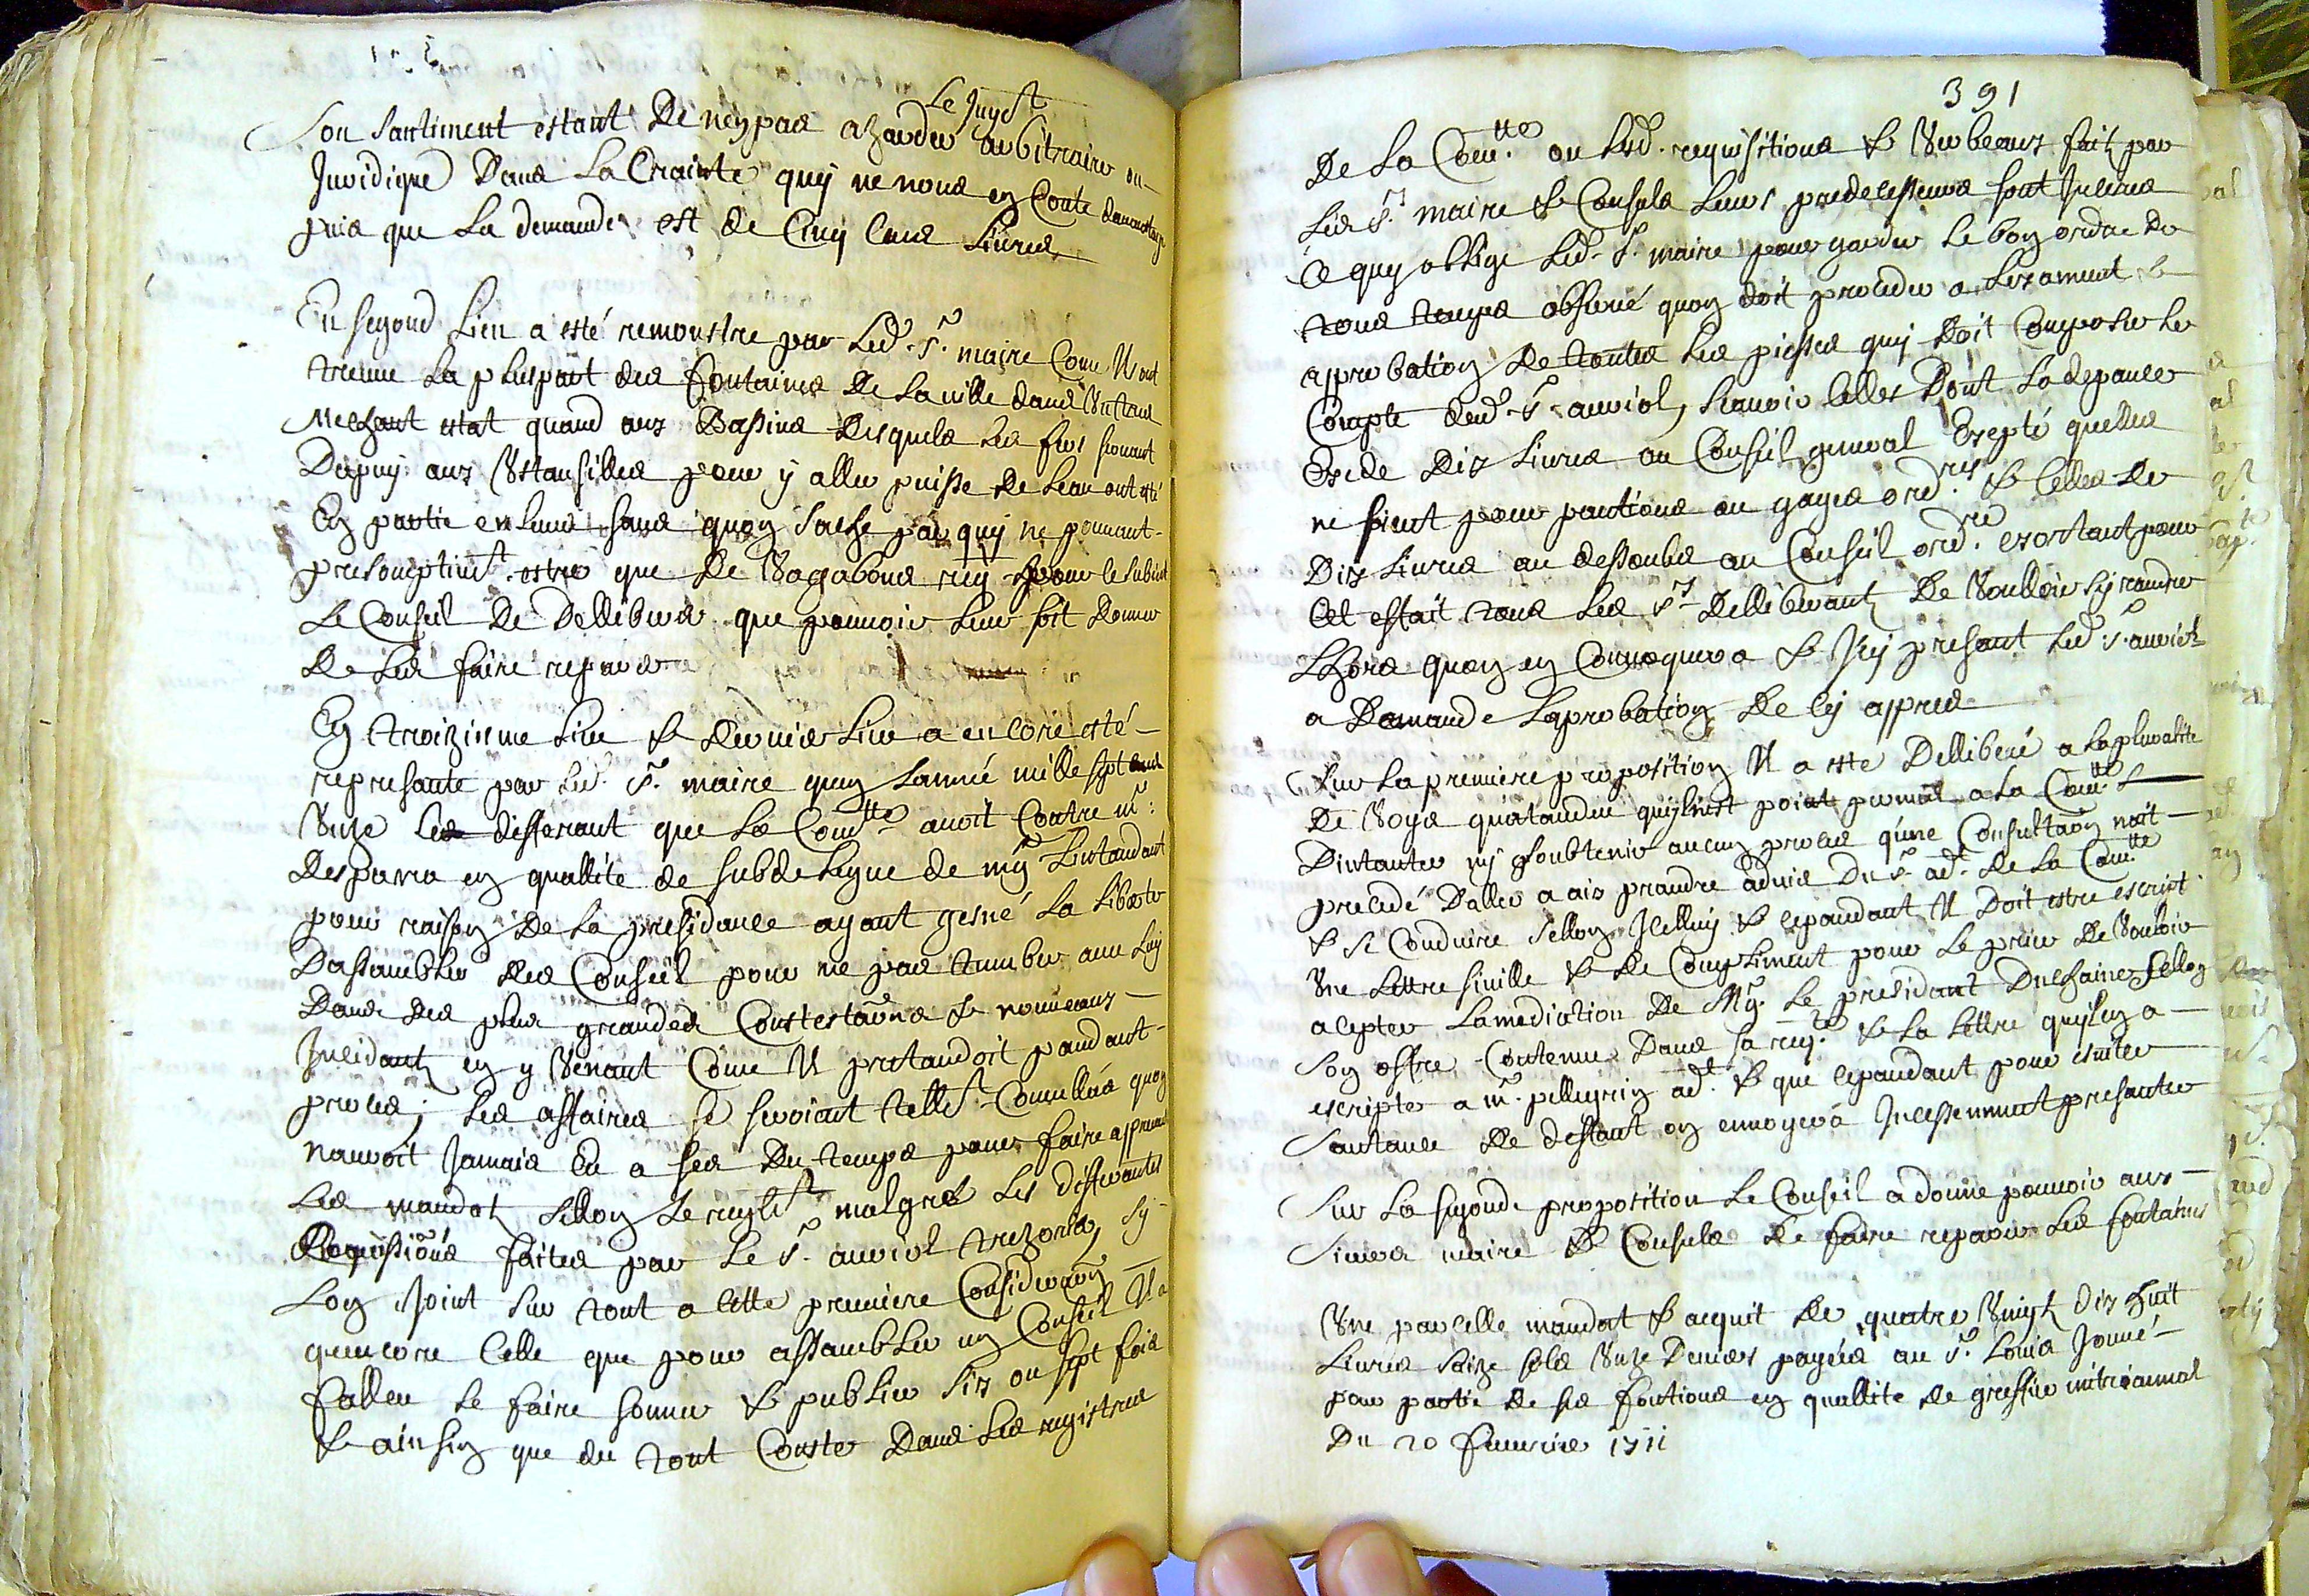 Le Jugem.t
Son santiment estant De ney pas azarder arbitraire ou
Juridique Dans La Crainte quy ne nous en Coute davantage
puis que La demande est de Cinq Cens Livres
En segond Lieu a esté remonstre par Led. Sr. maire Come Il ont
treuve La pluspart des fontaines De La ville dans Un tres
Mechant estat quand aux Bassins Desquels Les fers servant
Dapuy aux Ustansilles pour y aller puiser De Leau ont esté
En partie enleves sans quon sache par quy ne pouvant
presomptivt. estre que De Vagabons
Le Conseil De Delliberer que pouvoir Leur soit Donner
De Les faire reparer
En troizieme Lieu & Dernier Lieu a encore esté
represante par Led. Sr. maire quen Lannee mille sept cens
Unze Les differant que La Com.tte avoit Contre mr.
Desparra en quallite de subdelegue de mgr Lintandant
pour raison De La presidance ayant gesné La Liberte
Dassambler Des Conseil pour ne pas tumber avec Luy
Dans Des plus grandes Contestaons & nouveaus
Incidants en y Venant Come Il pretandoit pandant
proces; Les affaires se seroient tellemt. Cumullés quon
nauroit Jamais Eu assez Du temps pour faire approuver
Les mandats sellon Le reglemt. malgres Les differantes
Requisitions faites par Le Sr. auriol trezorier, sy
Lon Joint sur tout a Cette premiere Consideraon
quencore Celle que pour assambler un Conseil Il a
falleu Le faire sonner & publier six ou sept fois
& ainsin que du tout Conste Dans Les registres
391
De La Com.tte ou Lesd. requisitions & Verbeaux fait par
Les Srs maire & Consuls Leurs predecesseurs sont Inceres
Ce quy oblige Led. Sr. maire pour garder Le bon ordre De
tous temps observé quon doit proceder a Lexament &
approbation De toutes Les piesses quy Doit Composer Le
Compte dud. Sr. auriol, scavoir Celles Dont La depance
Excede Dix Livres au Conseil general Excepté quelles
ne soient pour pantions ou gages ord.res & Celles De
Dix Livres au dessoubs au Conseil ord.re exortant pour
Cet effait tous Les Srs Delliberants De Voulloir sy randre
Lhors quon en Convoquera & Icy presant Led. Sr. auriol
a Demande Laprobation De Cy appres
Sur La premiere proposition Il a este Delliberé a La pluralitte
De Voys quatandeu quyl nest point permis a La Com.tte
Dintanter ny soubtenir aucun proces qune Consultaon nait
precedé Daller a aix prandre adviz Du Sr. ad.t De La Com.tte
& se Conduire sellon Icelluy & cepandant Il Doit estre escript
Une Lettre siville & De Compliment pour Le prier De Vouloir
accepter La mediation De Mgr. Le presidant Duchaine sellon
son offre Contenue Dans sa req.te & La Lettre quyl en a
escripte a mr. pellegrin ad.t & que cepandant pour eviter
Santance De deffaut on envoyera Incessemment presanter
Sur La segonde proposition Le Conseil a donne pouvoir aux
Sieurs maire & Consuls De faire reparer Les fontaines
Une parcelle mandat & acquit De quatre Vingts Dix huit
Livres saize sols Unze Deniers payees au Sr. Louis Jonné
pour partie De ses fontions en quallite de greffier
Du 20 feuvrier 1711